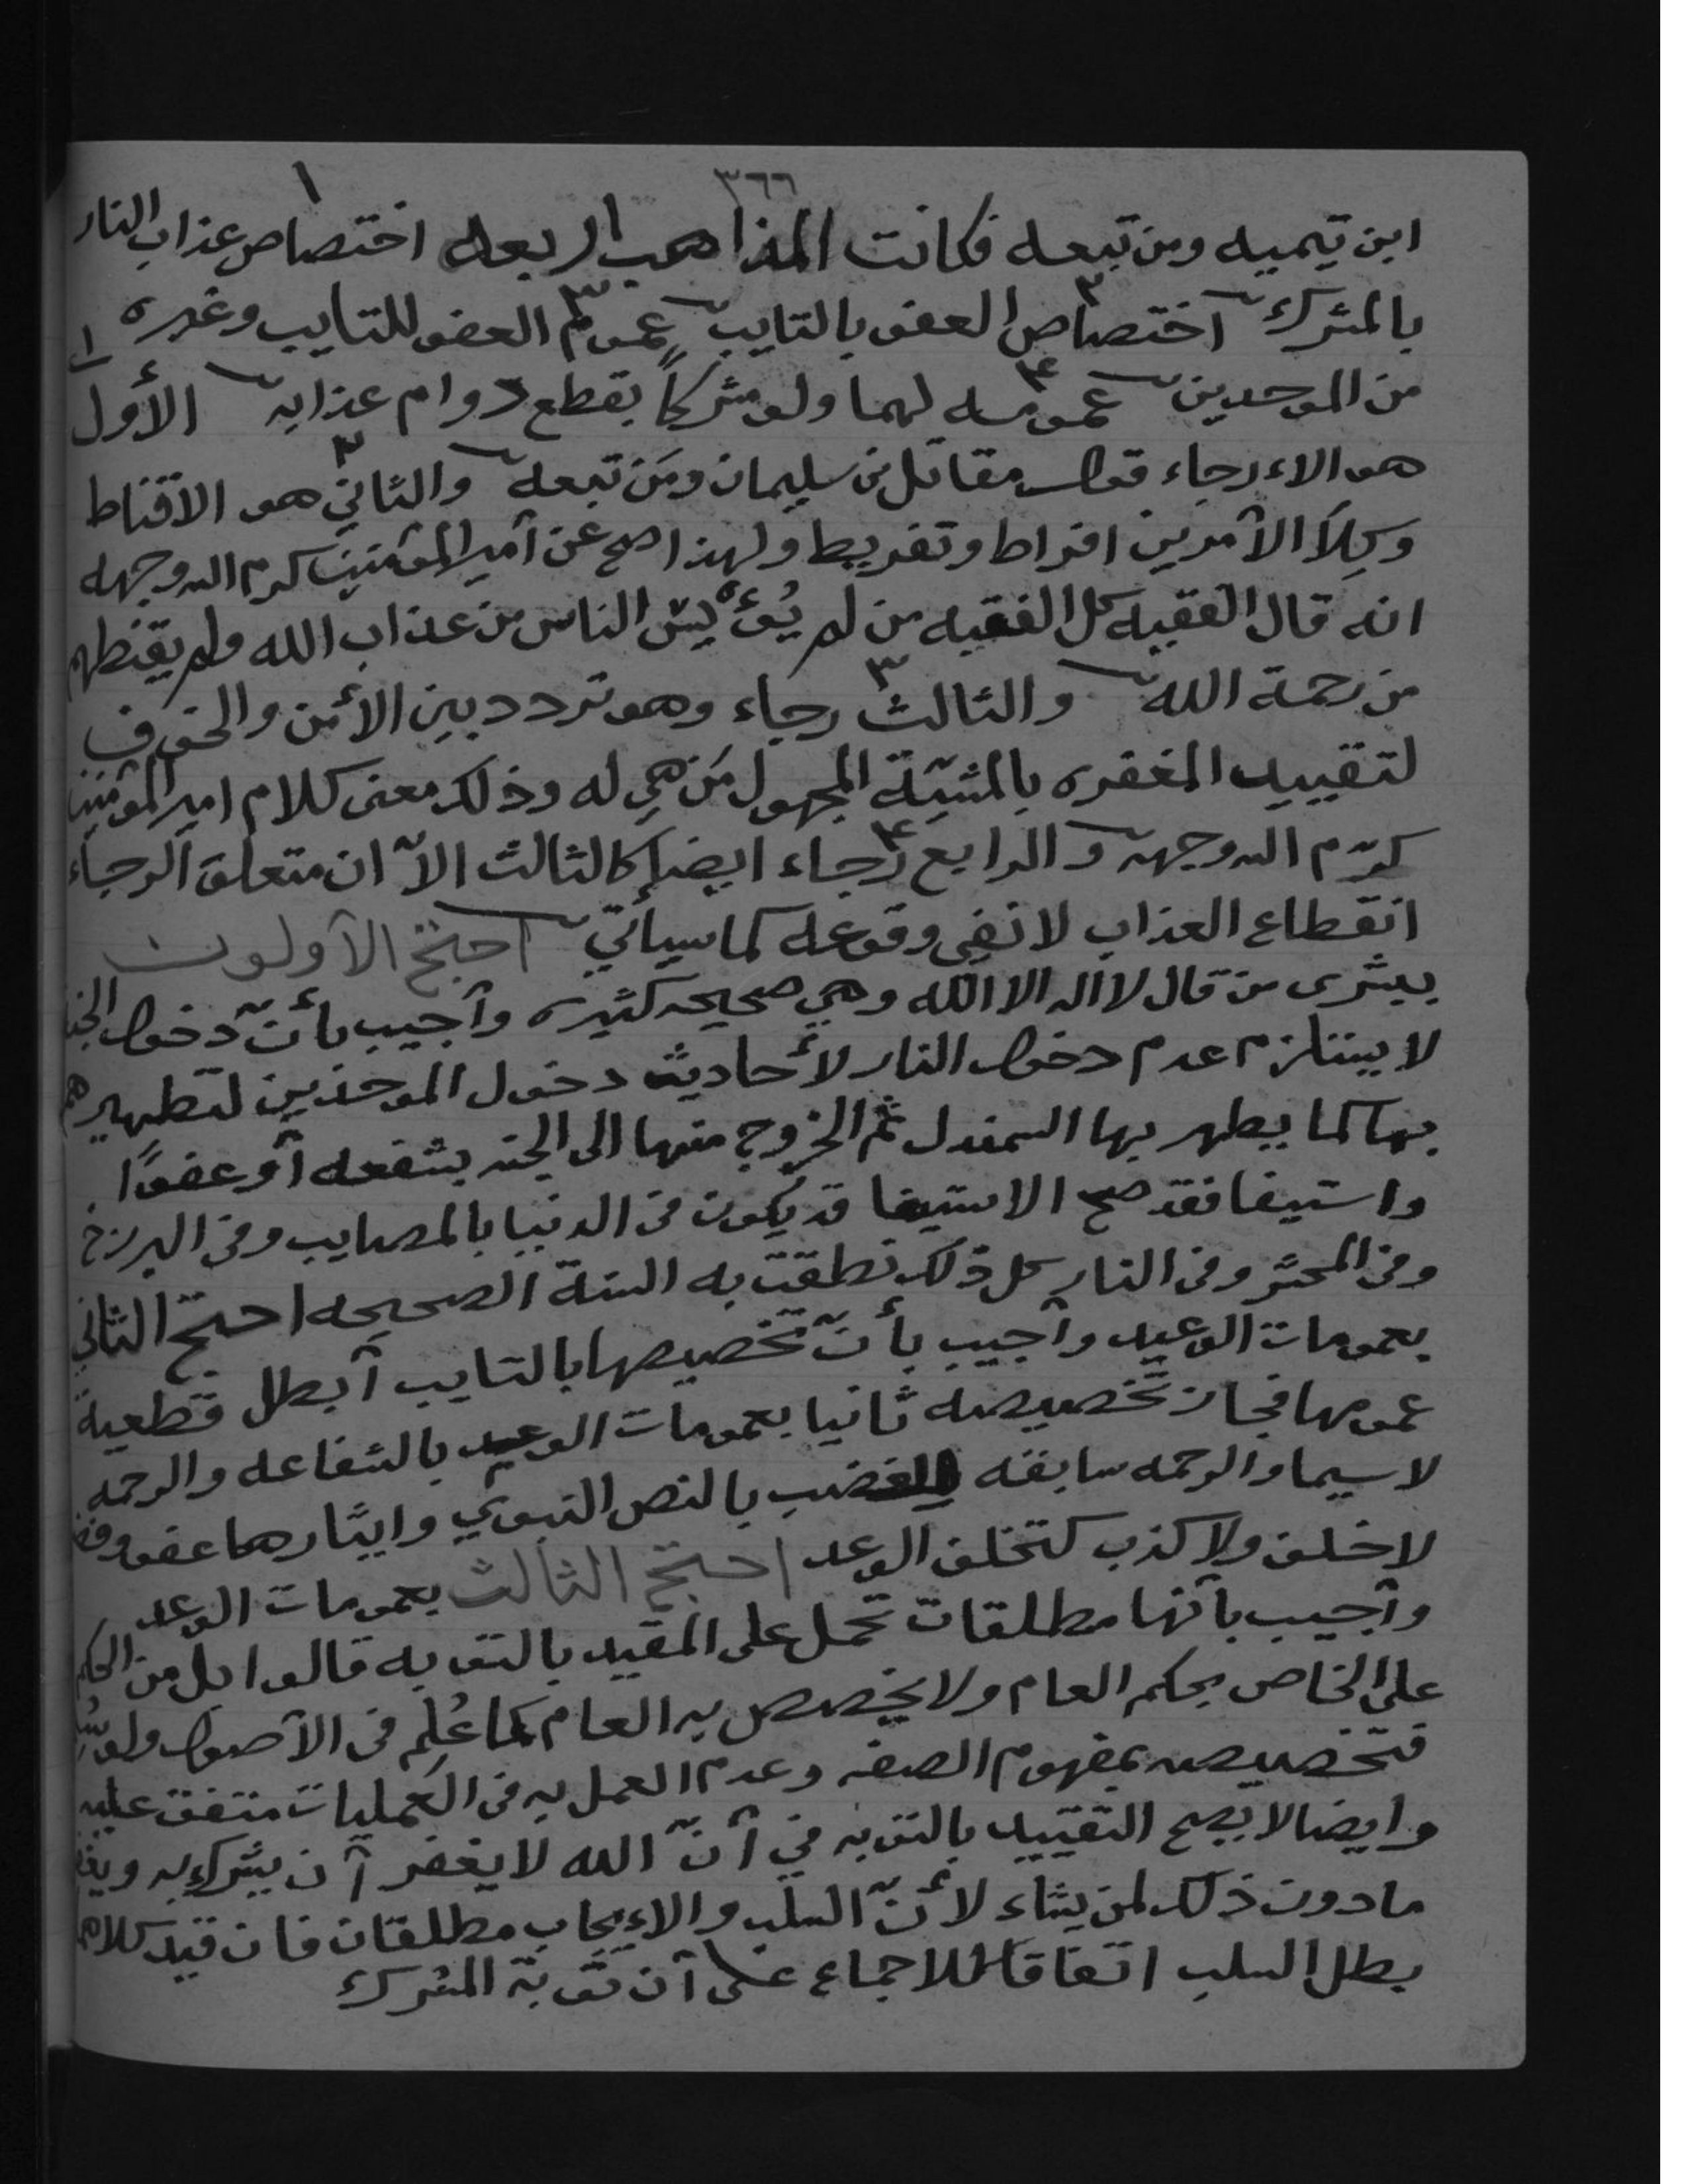 ٣٦٦
ابن تيميه ومن تبعه فكانت المذاهب اربعه ١ اختصاص عذاب النار
بالمشرك ٢ اختصاص العفو بالتايب ٣ عموم العفو للتايب وغيره
من الموحدين ٤ عمومه لهما ولو مشركاً بقطع دوام عذابه ١ الأول
هو الاءرجاء قول مقاتل بن سليمان ومَن تبعه ٢ والثاني هو الاقناط
وكِلاَ الأمرين افراط وتفريط ولهذا صح عن أمير المؤمنين كرم الله وجهه
انه قال الفقيه كل الفقيه من لم يُؤيس الناس من عذاب الله ولم يقنطهم
من رحمة الله ٣ والثالث رجاء وهو تردد بين الأمن والخوف
لتقييد المغفره بالمشيّة المجهول مَن هي له وذلك معنى كلام امير المؤمنين
كرّم الله وجهه ٤ والرابع رجاء ايضا كالثالث الاّ ان متعلق الرجاء
انقطاع العذاب لا نفي وقوعه كما سيأتي احتج الأولون
ببشرى من قال لا اله الا الله وهي صحيحه كثيره وأجيب بأنّ دخول الجنه
لا يستلزم عدم دخول النار لأحاديث دخول الموحدين لتطهيرهم
بها كما يطهر بها السمندل ثم الخروج منها الى الجنه بشفعه أو عفوًا
واستيفا فقد صح الاستيفا قد يكون فى الدنيا بالمصايب وفى البرزخ
وفى المحشر وفى النار كل ذلك نطقت به السنة الصحيحه احتج الثاني
بعمومات الوعيد وأجيب بأنّ تخصيصها بالتايب أبطل قطعية
عمومها فجاز تخصيصه ثانيا بعمومات الوعيد بالشفاعه والرحمه
لا سيما والرحمه سابقه للغضب بالنص النبوي وايثارها عفو وفضل
لا خلف ولا كذب كتخلف الوعد احتج الثالث بعمومات الوعد
وأجيب بأنها مطلقات تحمل على المقيد بالتوبه قالوا بل من الحكم
على الخاص بحكم العام ولا يخصص به العام كما عُلِم فى الأصول ولو سُلّم
فتخصيصه بمفهوم الصفه وعدم العمل به فى العمليات متفق عليه
وايضا لا يصح التقييد بالتوبه في أنّ الله لا يغفر أن يشرك به ويغفر
ما دون ذلك لمن يشاء لأنّ السلب والاءيجاب مطلقان فان قيد كلاهما
بطل السلب اتفاقا للاجماع على أن توبة المشرك